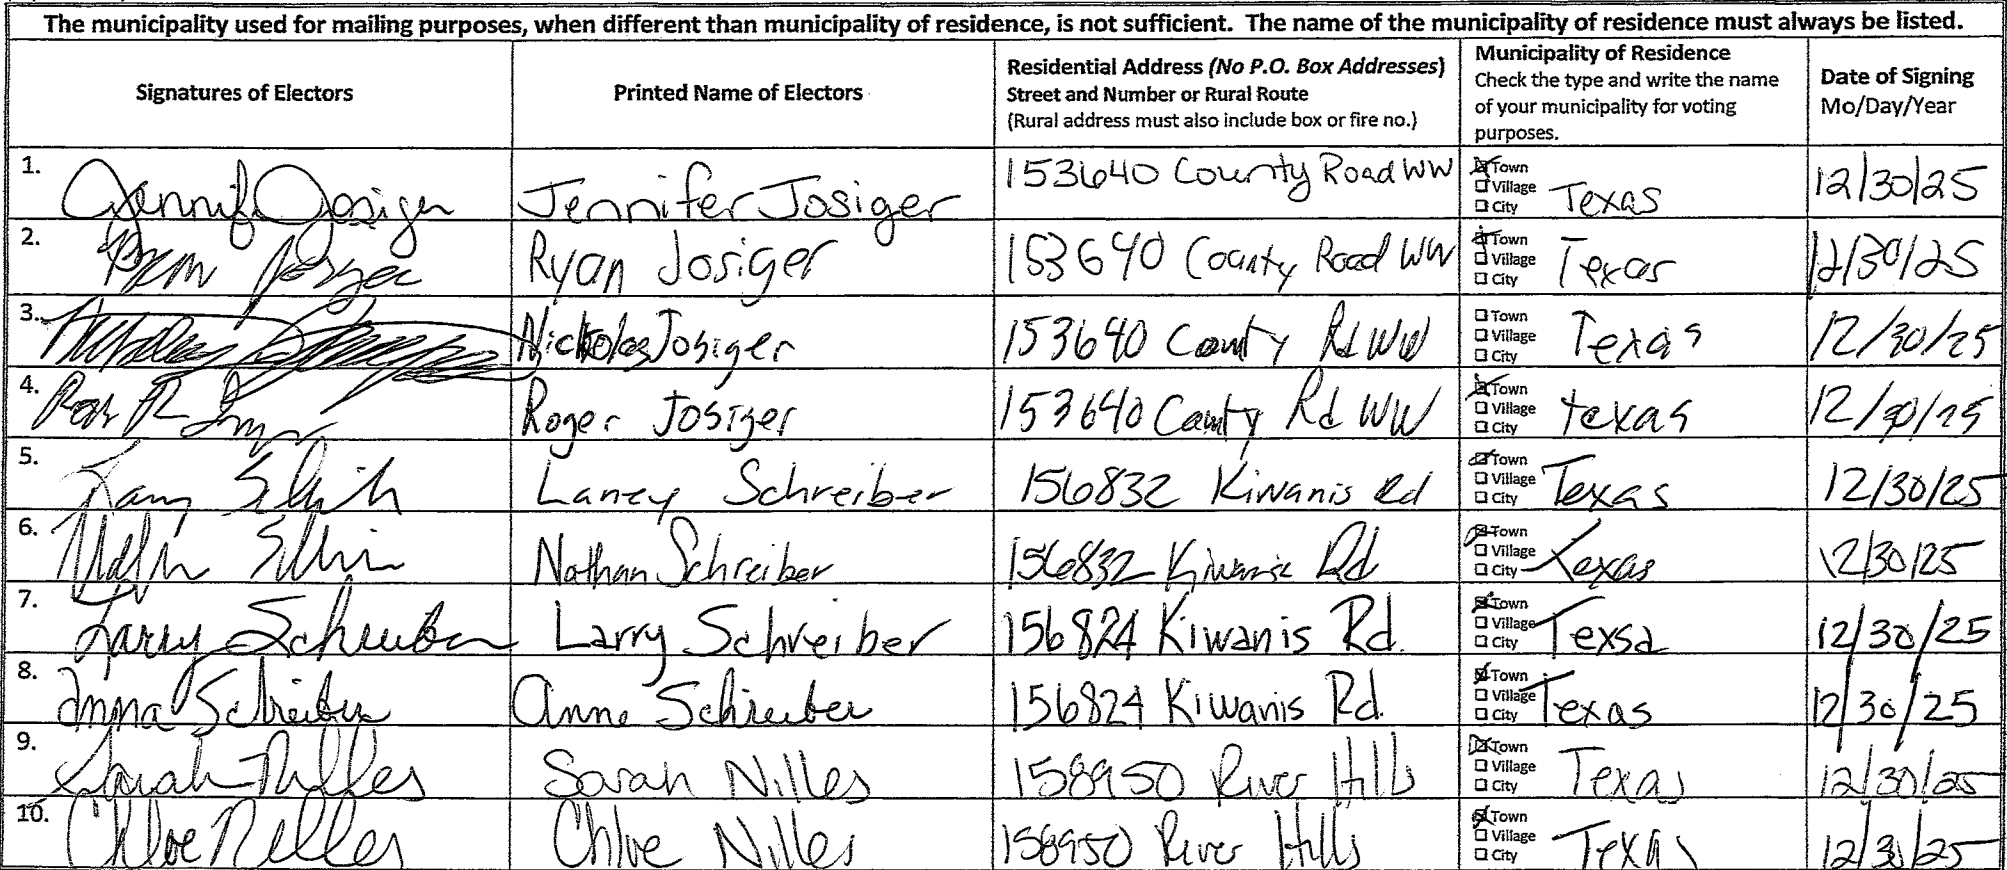 The municipality used for mailing purposes, when different than municipality of residence, is not sufficient. The name of the municipality of residence must always be listed.
Signatures of Electors
Printed Name of Electors
Residential Address (No P.O. Box Addresses)
Street and Number or Rural Route
(Rural address must also include box or fire no.)
Municipality of Residence
Check the type and write the name
of your municipality for voting
purposes.
Date of Signing
Mo/Day/Year
1. Jennifer Josiger Jennifer Josiger 153640 County Road WW Town Village City Texas 12/30/25
2. Ryan Josiger 153640 County Road WW Town Village City Texas 12/30/25
3. Nickolas Josiger 153640 County Rd WW Town Village City Texas 12/30/25
4. Roger Josiger 153640 County Rd WW Town Village City texas 12/30/25
5. Laney Schreiber 156832 Kiwanis Rd Town Village City Texas 12/30/25
6. Nathan Schreiber 156832 Kiwanis Rd Town Village City Texas 12/30/25
7. Larry Schreiber Larry Schreiber 156824 Kiwanis Rd. Town Village City Texsa 12/30/25
8. Anna Schreiber Anne Schreiber 156824 Kiwanis Rd. Town Village City Texas 12/30/25
9. Sarah Nilles Sarah Nilles 158950 River Hills Town Village City Texas 12/30/25
10. Chloe Nilles Chloe Nilles 158950 River Hills Town Village City Texas 12/30/25